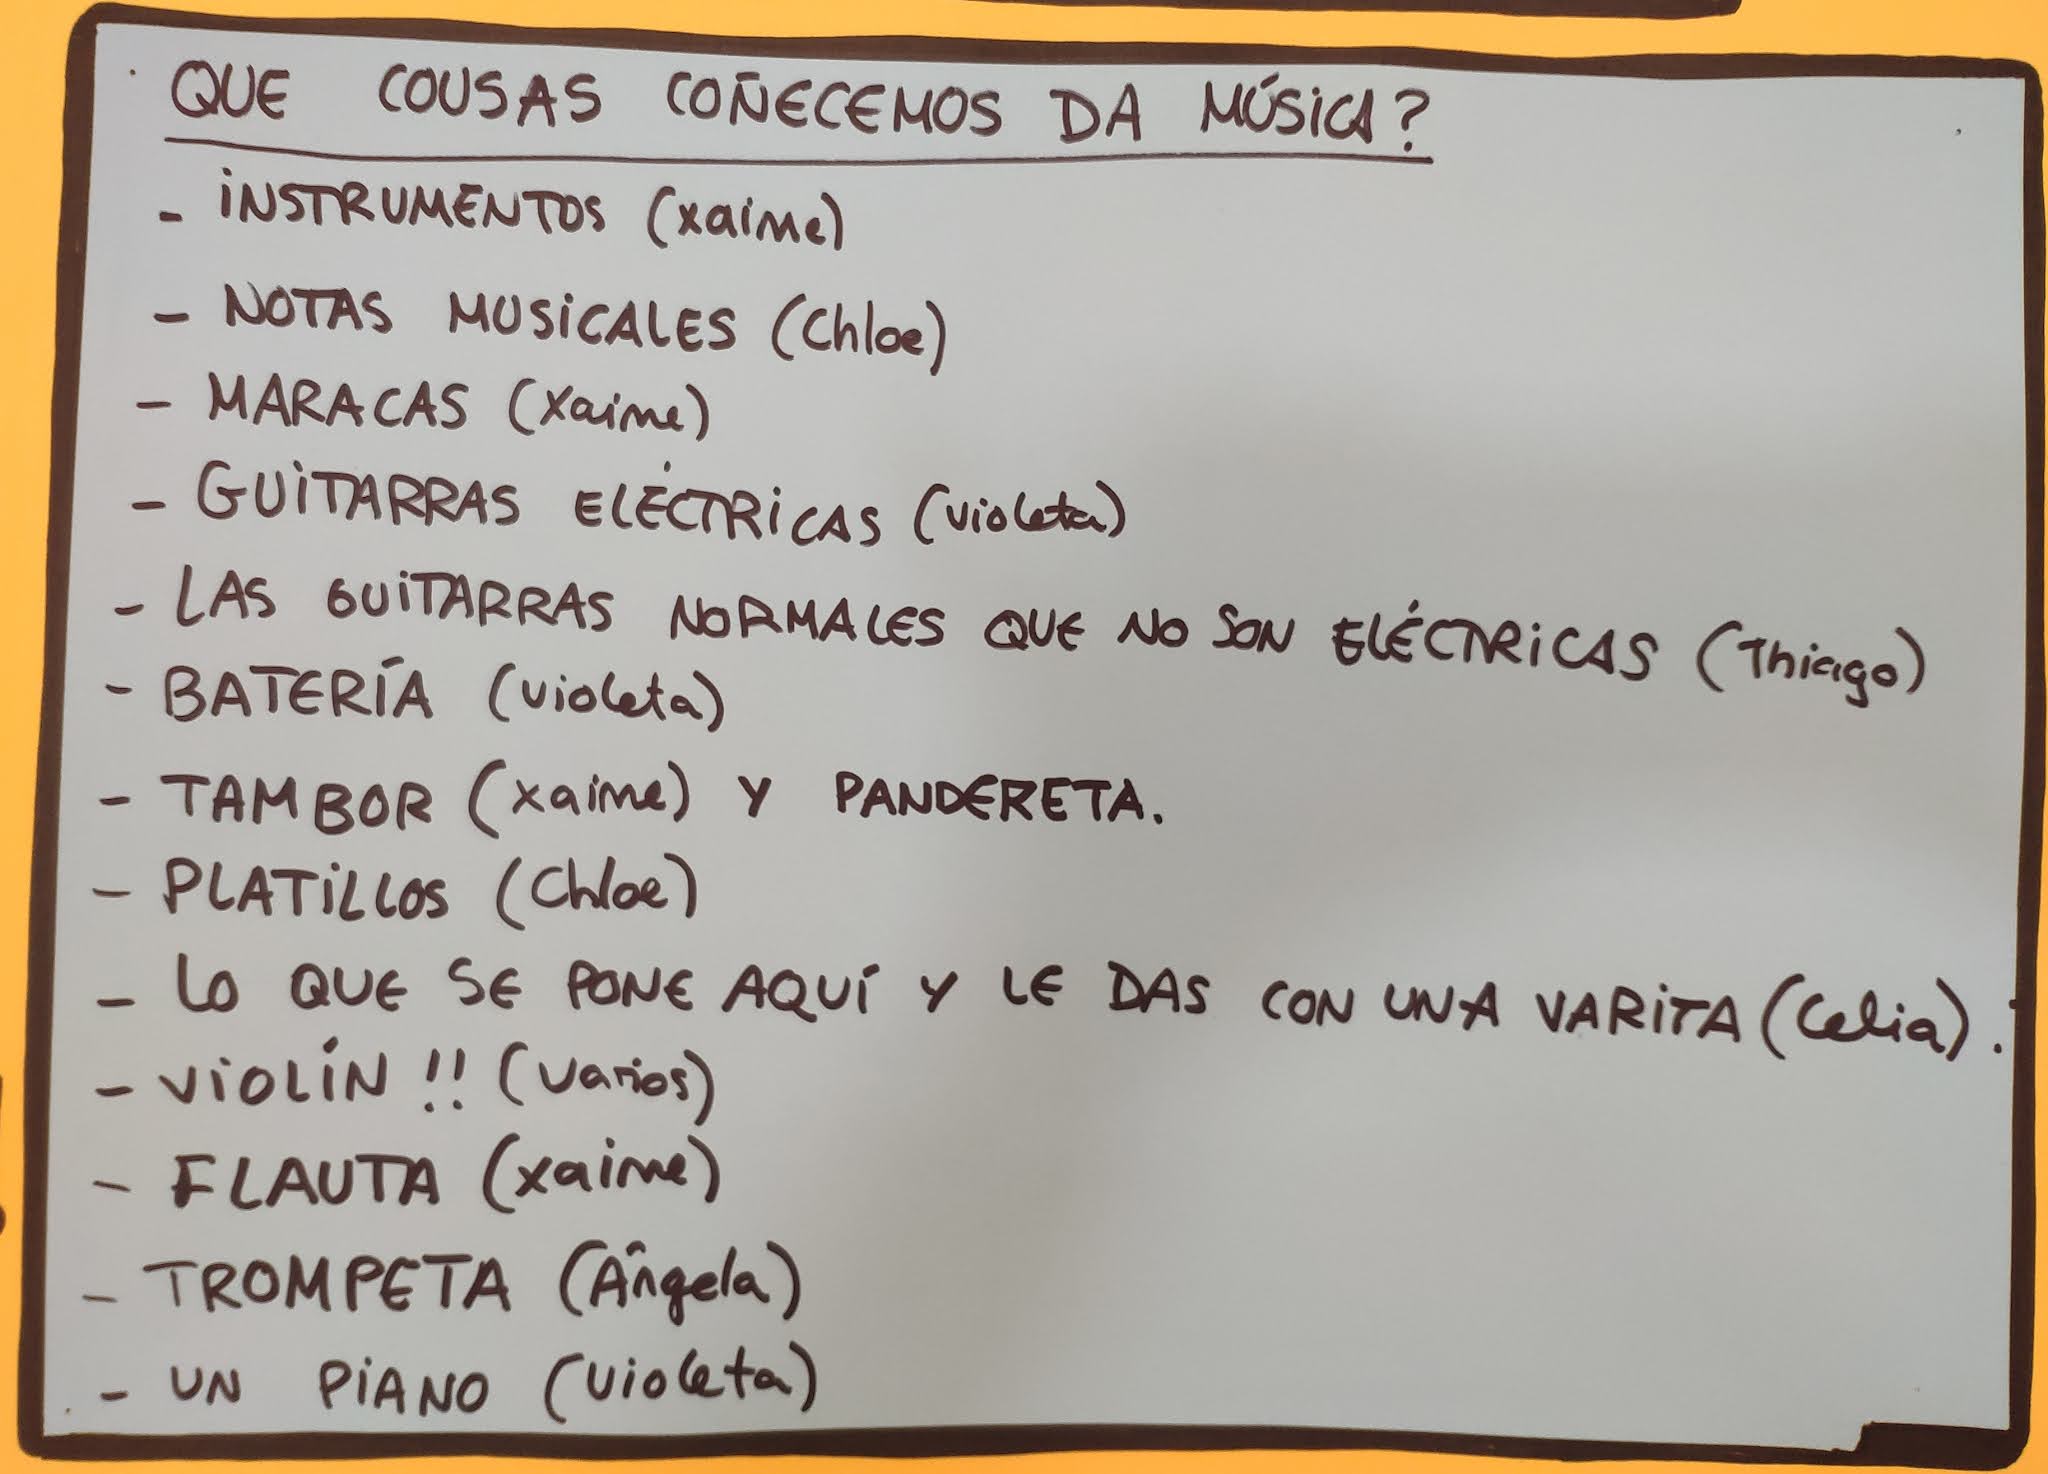 QUE COUSAS COÑECEMOS DA MÚSICA?
- INSTRUMENTOS (Xaime)
- NOTAS MUSICALES (Chloe)
- MARACAS (Xaime)
- GUITARRAS ELÉCTRICAS (Violeta)
- LAS GUITARRAS NORMALES QUE NO SON ELÉCTRICAS (Thiago)
- BATERÍA (Violeta)
- TAMBOR (Xaime) Y PANDERETA.
- PLATILLOS (Chloe)
- LO QUE SE PONE AQUÍ Y LE DAS CON UNA VARITA (Celia).
- VIOLÍN !! (Varios)
- FLAUTA (Xaime)
- TROMPETA (Ângela)
- UN PIANO (Violeta)